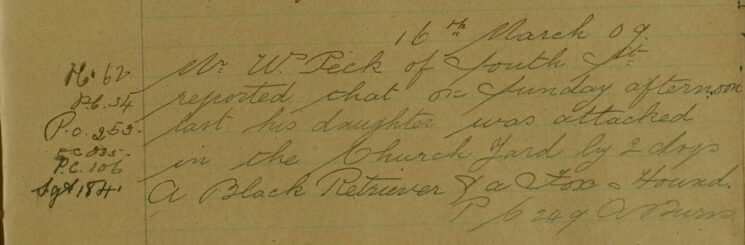 16th March 09.
Mr Wm Peck of South St
reported that on Sunday afternoon
last his daughter was attacked
in the Church Yard by 2 dogs
A Black Retriever & a Fox = Hound.
P/C 249
P.C. 54
P.C. 253.
P.C. 106
Sgt 184.